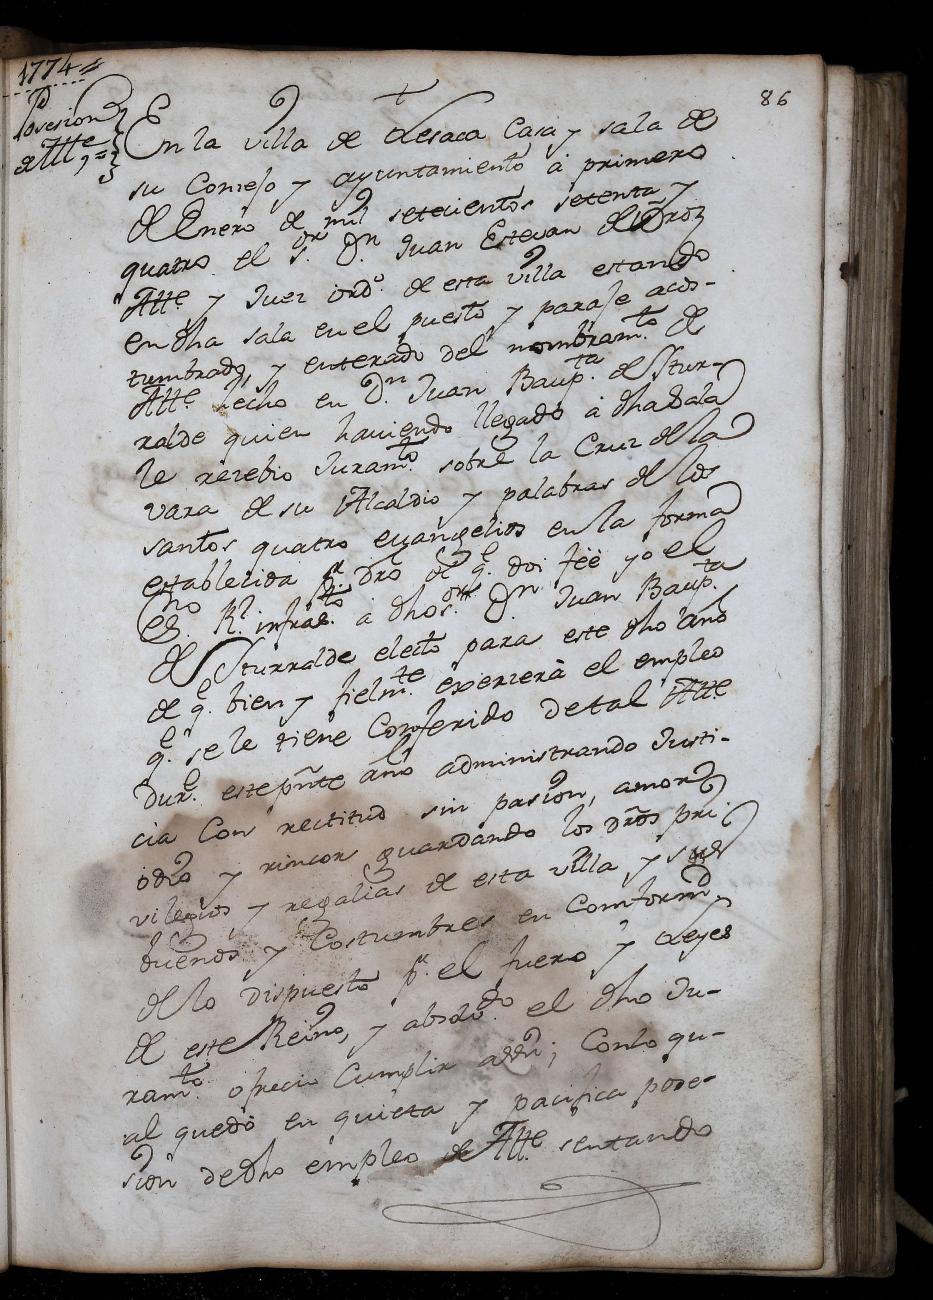 1774
86
Posesion
de Alle
En la villa de Lesaca Casa y sala de
su Consejo y ayuntamiento à primero
de Enero de mil setecientos setenta y
quatro el S.or D.n Juan Estevan de
Alle. y Juez ord.o de esta villa estando
en dha sala en el puesto y paraje acos-
tumbrado, y enterado del nombram.to de
Alle. hecho en D.n Juan Baup.ta de Ytur-
ralde quien haviendo llegado à dha Sala
le rezebio Juram.to sobre la Cruz de la
vara de su Alcaldio y palabras de los
santos quatro evangelios en la forma
establecida p.r dro de q.e doi feè yo el
Es.no R.l infras.to a dho S.or D.n Juan Baup.ta
de Yturralde electo para este dho año
de q.e bien y fielm.te exerzerà el empleo
q.e se le tiene Conferido de tal Alle.
dur.e este pñte año administrando Justi-
cia Con rectitud sin pasion, amor
odio y rincor guardando los dros pri
vilegios y regalias de esta villa y sus
buenos y Costumbres en Comformd.
de lo dispuesto p.r el fuero y Leyes
de este Reino, y absolv.do el dho Ju-
ram.to ofrecio Cumplir assi; Con lo qu-
al quedò en quieta y pacifica pose-
sion de dho empleo de Alle. sentando